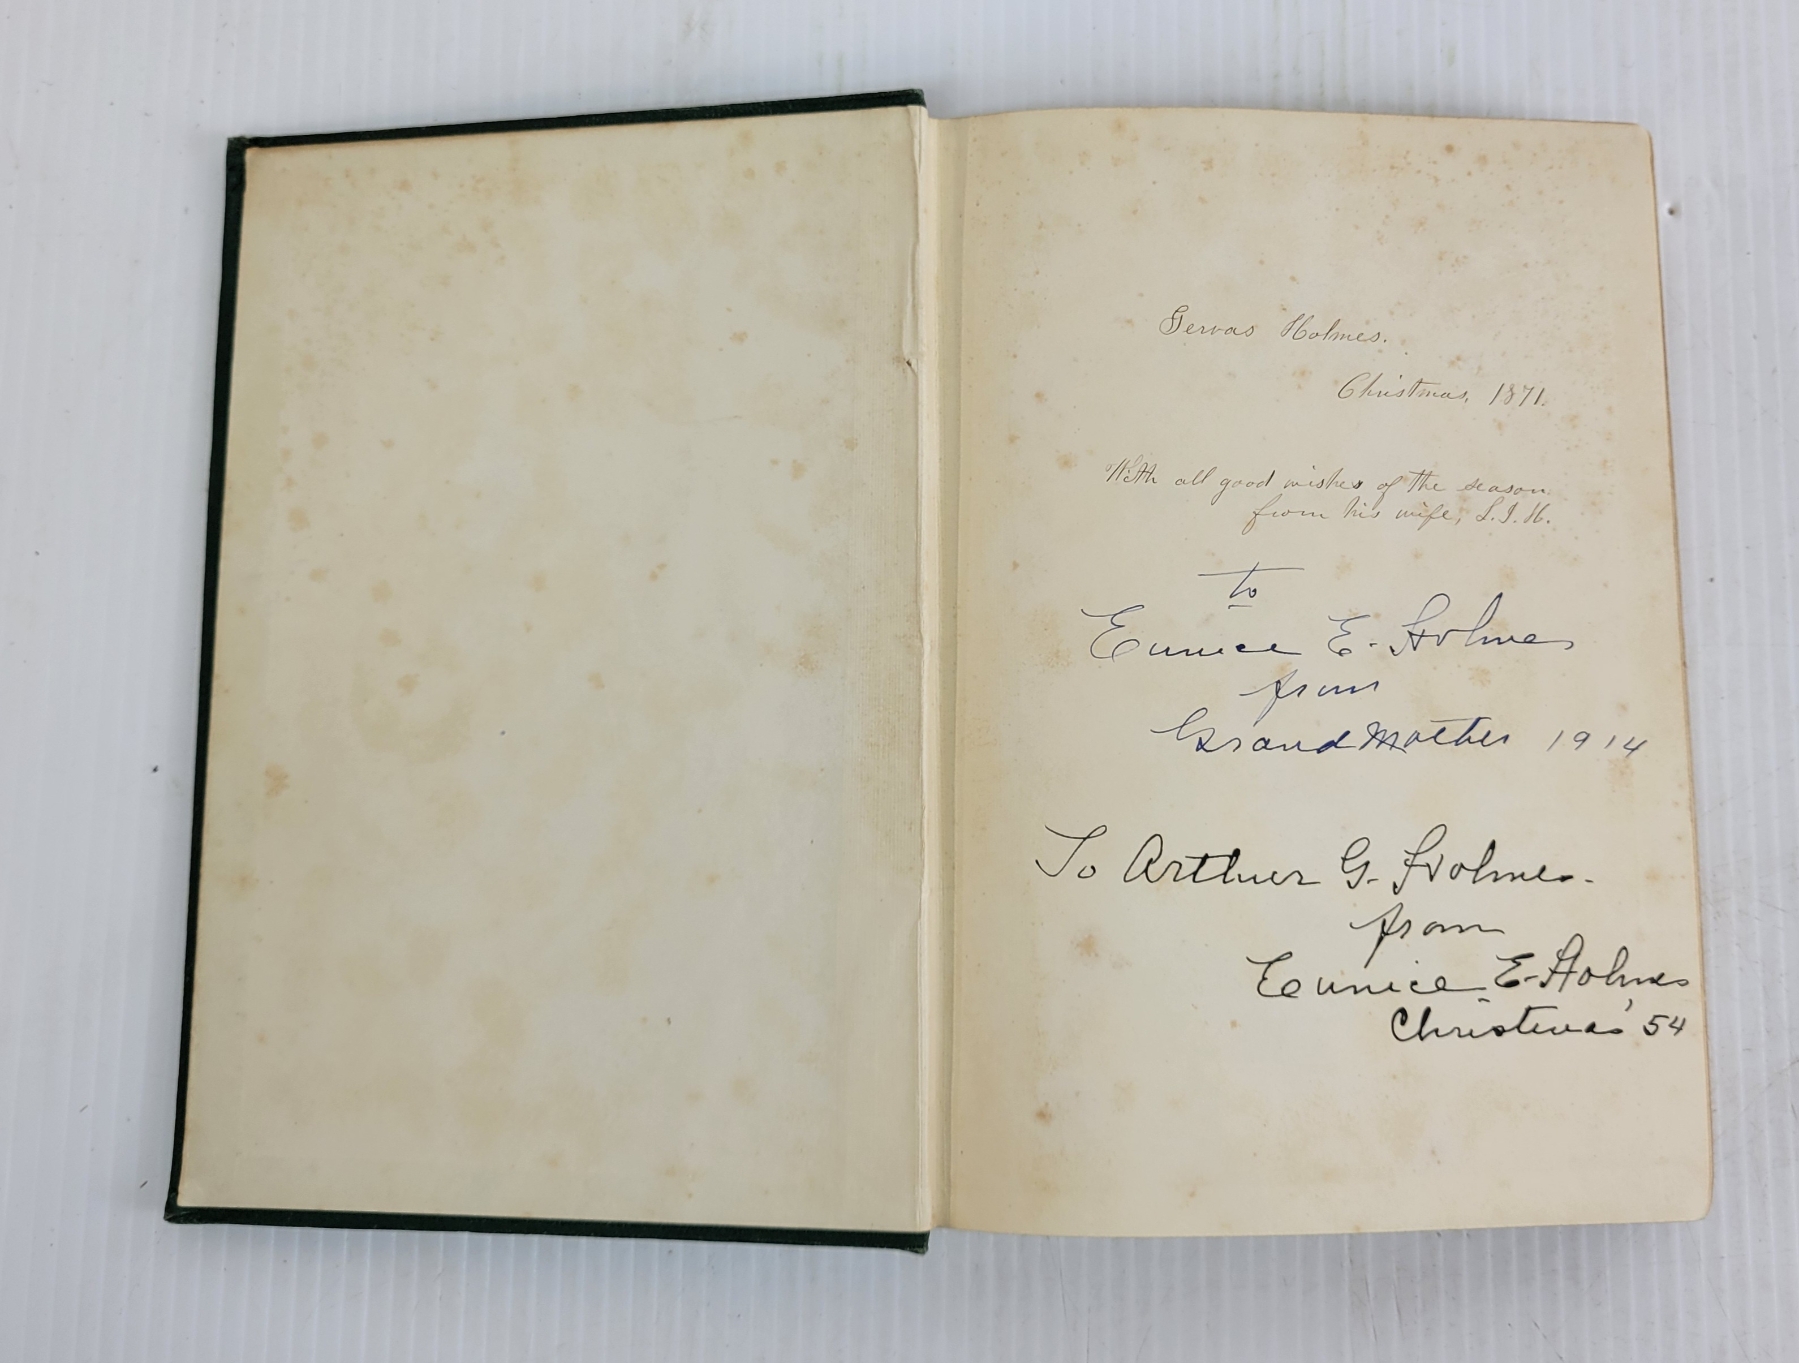 Gervas Holmes.
Christmas, 1871.
With all good wishes of the season
from his wife, L. I. H.
to
Eunice E. Holmes
from
GrandMother 1914
To Arthur G. Holmes.
from
Eunice E. Holmes
Christmas '54